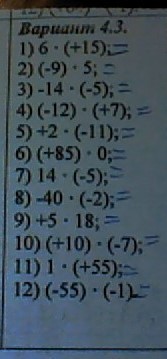 Вариант 4.3.
1) 6 · (+15);=
2) (-9) · 5;=
3) -14 · (-5);=
4) (-12) · (+7);=
5) +2 · (-11);=
6) (+85) · 0;=
7) 14 · (-5);=
8) -40 · (-2);=
9) +5 · 18;=
10) (+10) · (-7);=
11) 1 · (+55);=
12) (-55) · (-1).=